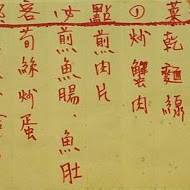 客必點①
乾麵線
炒蟹肉
煎肉片
煎魚腸、魚肚
筍絲炒蛋